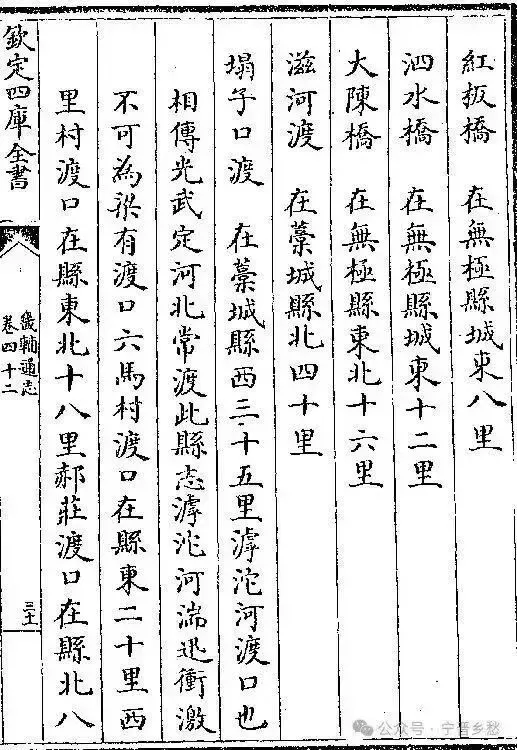 紅板橋 在無極縣城東八里
泗水橋 在無極縣城東十二里
大陳橋 在無極縣東北十六里
滋河渡 在藁城縣北四十里
塌子口渡 在藁城縣西三十五里滹沱河渡口也
相傳光武定河北常渡此縣志滹沱河湍迅衝激
不可為梁有渡口六馬村渡口在縣東二十里西
里村渡口在縣東北十八里郝莊渡口在縣北八
欽定四庫全書
畿輔通志
卷四十二
三十
公众号·宁晋乡愁